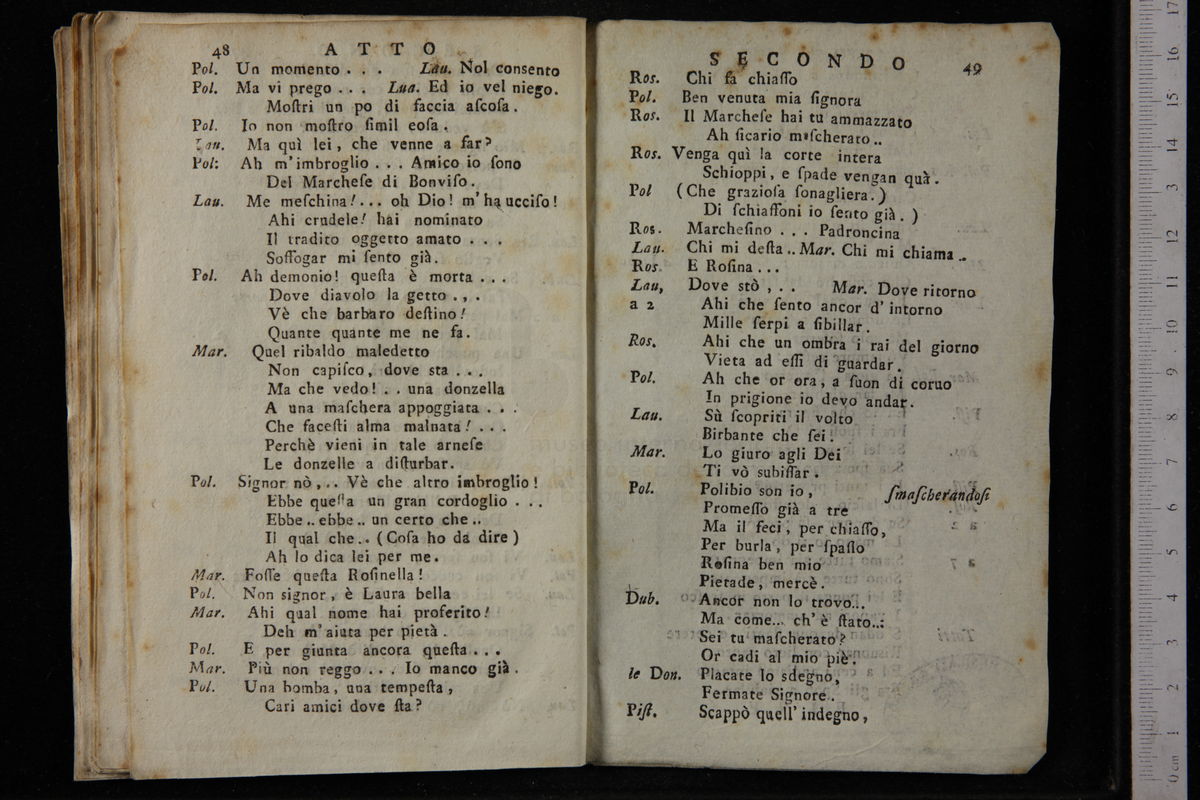 48 ATTO
Pol. Un momento . . . Lau. Nol consento
Pol. Ma vi prego . . . Lua. Ed io vel niego.
Moſtri un po di faccia aſcoſa.
Pol. Io non moſtro ſimil eoſa.
Lau. Ma quì lei, che venne a far?
Pol: Ah m'imbroglio . . . Amico io ſono
Del Marcheſe di Bonviſo.
Lau. Me meſchina!... oh Dio! m'ha ucciſo!
Ahi crudele! hai nominato
Il tradito oggetto amato . . .
Soffogar mi ſento già.
Pol. Ah demonio! queſta è morta . . .
Dove diavolo la getto . , .
Vè che barbaro deſtino!
Quante quante me ne fa.
Mar. Quel ribaldo maledetto
Non capiſco, dove sta . . .
Ma che vedo! . . una donzella
A una maſchera appoggiata . . .
Che faceſti alma malnata! . . .
Perchè vieni in tale arneſe
Le donzelle a diſturbar.
Pol. Signor nò , . . Vè che altro imbroglio!
Ebbe queſta un gran cordoglio . . .
Ebbe .. ebbe .. un certo che ..
Il qual che.. (Coſa ho da dire)
Ah lo dica lei per me.
Mar. Foſſe queſta Roſinella!
Pol. Non signor, è Laura bella
Mar. Ahi qual nome hai proferito!
Deh m'aiuta per pietà.
Pol. E per giunta ancora queſta . . .
Mar. Più non reggo . . . Io manco già.
Pol. Una bomba, una tempeſta,
Cari amici dove ſta?
SECONDO 49
Ros. Chi fa chiaſſo
Pol. Ben venuta mia ſignora
Ros. Il Marcheſe hai tu ammazzato
Ah ſicario maſcherato ..
Ros. Venga quì la corte intera
Schioppi, e ſpade vengan quà.
Pol (Che grazioſa ſonagliera.)
Di ſchiaffoni io ſento già. )
Ros. Marcheſino . . . Padroncina
Lau. Chi mi deſta .. Mar. Chi mi chiama ..
Ros. E Roſina . . .
Lau, Dove stò , . . Mar. Dove ritorno
a 2 Ahi che ſento ancor d'intorno
Mille ſerpi a ſibillar.
Ros. Ahi che un ombra i rai del giorno
Vieta ad eſſi di guardar.
Pol. Ah che or ora, a ſuon di coruo
In prigione io devo andar.
Lau. Sù ſcopriti il volto
Birbante che ſei.
Mar. Lo giuro agli Dei
Ti vò subiſſar.
Pol. Polibio son io, ſmaſcherandoſi
Promeſſo già a tre
Ma il feci, per chiaſſo,
Per burla, per ſpaſſo
Roſina ben mio
Pietade, mercè.
Dub. Ancor non lo trovo...
Ma come... ch'è ſtato..:
Sei tu maſcherato?
Or cadi al mio piè.
le Don. Placate lo sdegno,
Fermate Signore..
Piſt. Scappò quell'indegno,